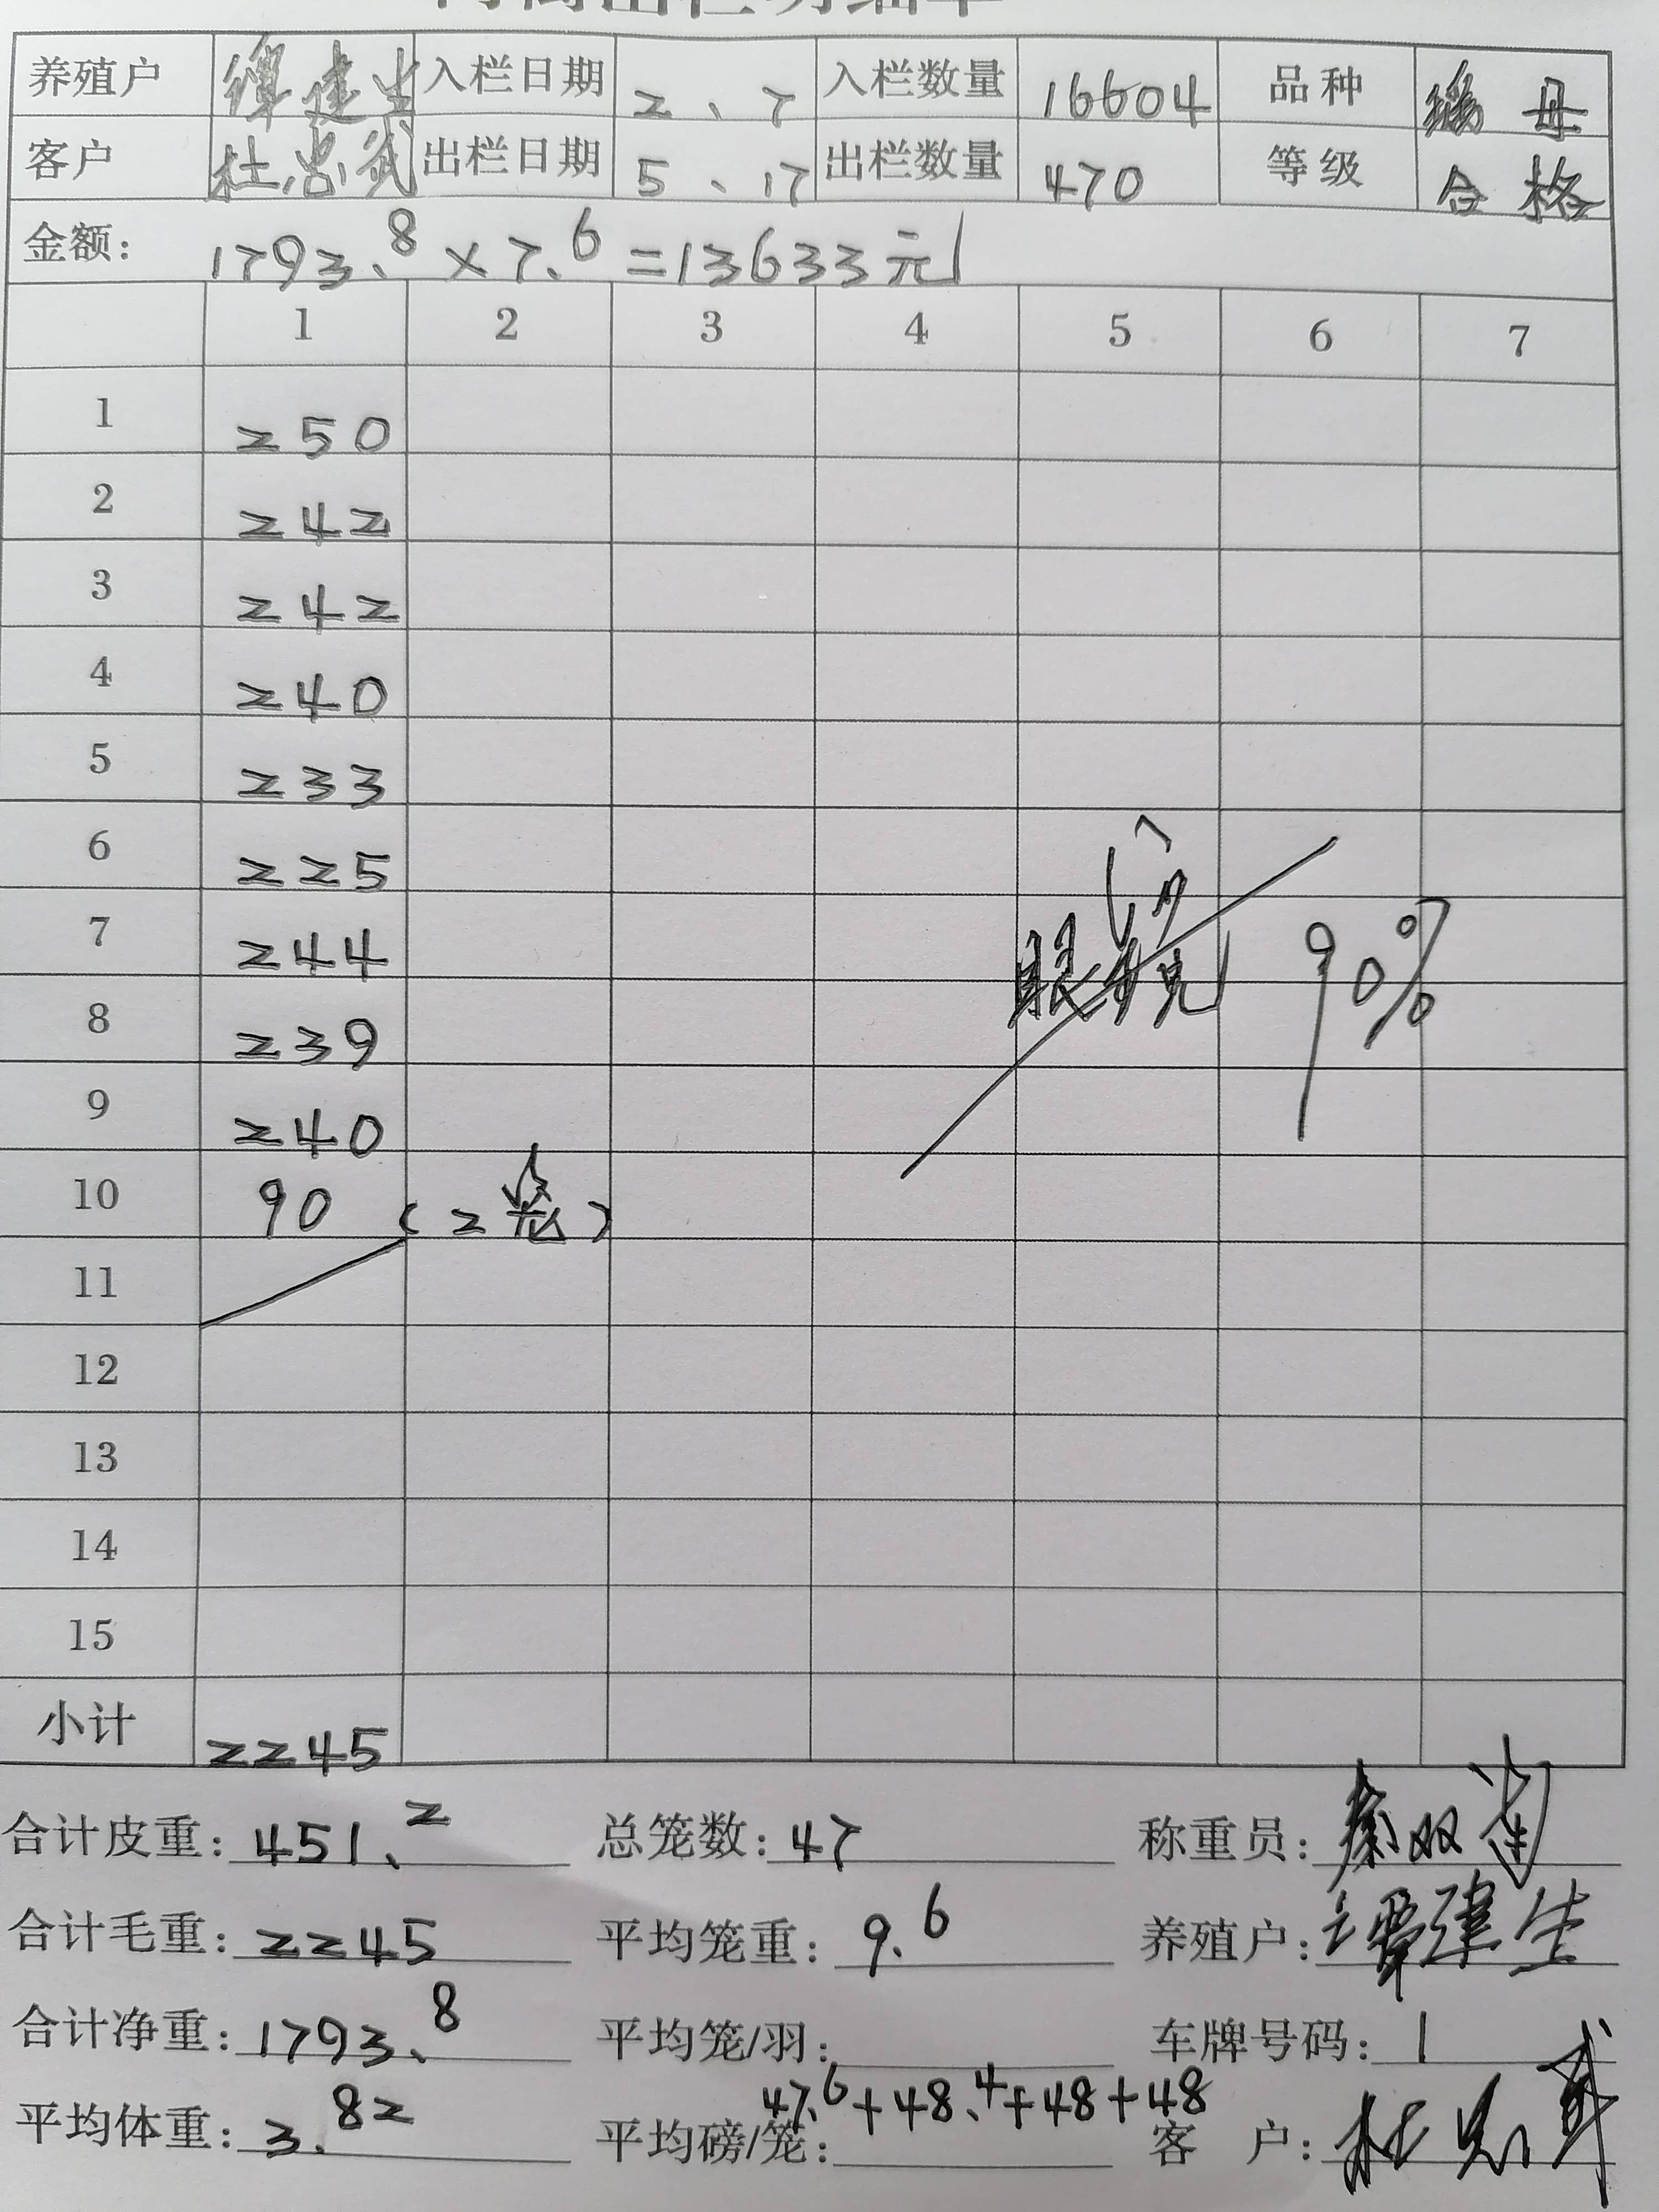 养殖户 谭建生 入栏日期 2、7 入栏数量 16604 品种 母
客户 杜忠武 出栏日期 5、17 出栏数量 470 等级 合格
金额: 1793.8 × 7.6 = 13633元
1 2 3 4 5 6 7
1 250
2 242
3 242
4 240
5 233
6 225
7 244
8 239
9 240
10 90 (2笼)
眼镜 90%
11
12
13
14
15
小计 2245
合计皮重: 451.2 总笼数: 47 称重员:
合计毛重: 2245 平均笼重: 9.6 养殖户: 谭建生
合计净重: 1793.8 平均笼/羽: 车牌号码: 1
47.6+48.4+48+48
平均体重: 3.82 平均磅/笼: 客 户: 杜忠武